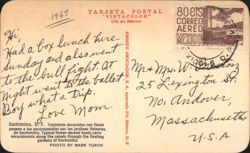 1969
TARJETA POSTAL
"VISTACOLOR"
80 cts
CORREO
AEREO
MEXICO
Hi,
Had a box lunch here
Sunday and also went
to the bull fight. At
Night went to the ballet
Boy what a trip.
Love Mom
Mr & Mrs
25 Lexington St.
No. Andover,
Massachusetts
U.S.A
Xochimilco, D.F. Trajineras decoradas con flores
pasean a los excursionistas por los jardines flotantes
de Xochimilco. Typical flower-decked boats carry
excursionists along the canals through the floating
gardens of Xochimilco.
PHOTO BY MARK TUROK